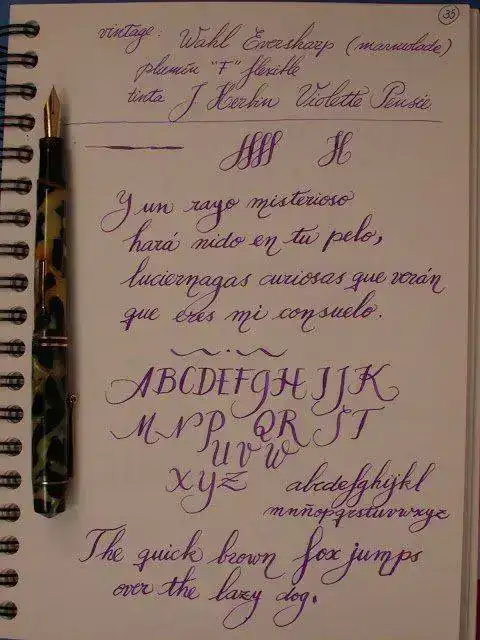 35
vintage: Wahl Eversharp (marmolade)
plumín "F" flexible
tinta J Herbin Violette Pensée
Y un rayo misterioso
hará nido en tu pelo,
luciernagas curiosas que verán
que eres mi consuelo.
ABCDEFGHIJK
MNPQRST
UVW
XYZ
abcdefghijkl
mnñopqrstuvwxyz
The quick brown fox jumps
over the lazy dog.